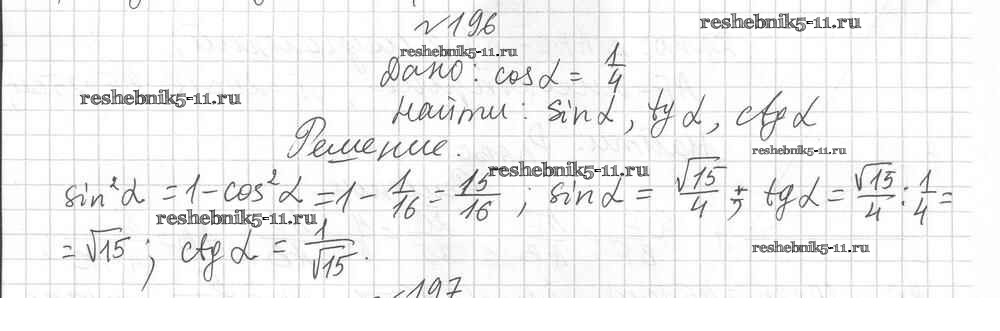 №196
reshebnik5-11.ru
reshebnik5-11.ru
Дано: cos α = 1/4
reshebnik5-11.ru
Найти: sin α, tg α, ctg α
Решение.
reshebnik5-11.ru
reshebnik5-11.ru
sin²α = 1 - cos²α = 1 - 1/16 = 15/16 ; sin α = √15/4 ; tg α = √15/4 : 1/4 =
reshebnik5-11.ru
= √15 ; ctg α = 1/√15 .
reshebnik5-11.ru
№197